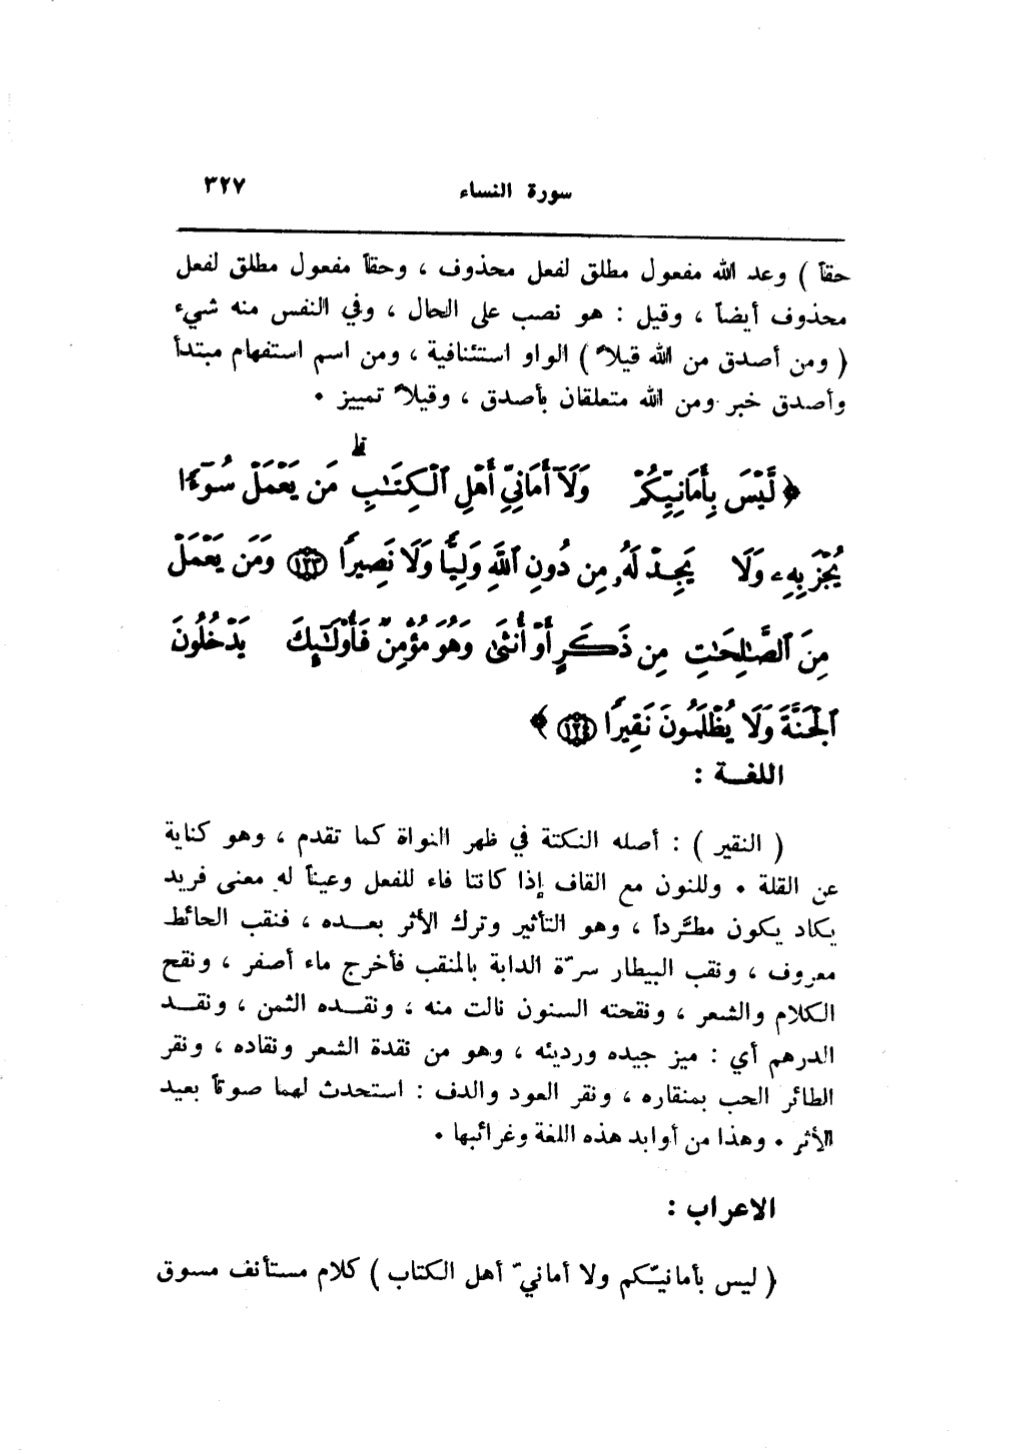 سورة النساء ٣٢٧
حقاً ) وعد الله مفعول مطلق لفعل محذوف ، وحقاً مفعول مطلق لفعل
محذوف أيضاً ، وقيل : هو نصب على الحال ، وفي النفس منه شيء
( ومن أصدق من الله قيلاً ) الواو استئنافية ، ومن اسم استفهام مبتدأ
وأصدق خبر ومن الله متعلقان بأصدق ، وقيلاً تمييز .
﴿ لَّيْسَ بِأَمَانِيِّكُمْ وَلَآ أَمَانِيِّ أَهْلِ ٱلْكِتَٰبِ ۗ مَن يَعْمَلْ سُوٓءًا
يُجْزَ بِهِۦ وَلَا يَجِدْ لَهُۥ مِن دُونِ ٱللَّهِ وَلِيًّا وَلَا نَصِيرًا ١٢٣ وَمَن يَعْمَلْ
مِنَ ٱلصَّٰلِحَٰتِ مِن ذَكَرٍ أَوْ أُنثَىٰ وَهُوَ مُؤْمِنٌ فَأُوْلَٰٓئِكَ يَدْخُلُونَ
ٱلْجَنَّةَ وَلَا يُظْلَمُونَ نَقِيرًا ١٢٤ ﴾
اللغـة :
( النقير ) : أصله النكتة في ظهر النواة كما تقدم ، وهو كناية
عن القلة . وللنون مع القاف إذا كانتا فاء للفعل وعيناً له معنى فريد
يكاد يكون مطّرداً ، وهو التأثير وترك الأثر بعـده ، فنقب الحائط
معروف ، ونقب البيطار سرّة الدابة بالمنقب فأخرج ماء أصفر ، ونقح
الكلام والشعر ، ونقحته السنون نالت منه ، ونقـده الثمن ، ونقـد
الدرهم أي : ميز جيده ورديئه ، وهو من نقدة الشعر ونقاده ، ونقر
الطائر الحب بمنقاره ، ونقر العود والدف : استحدث لهما صوتاً بعيد
الأثر . وهذا من أوابد هذه اللغة وغرائبها .
الاعراب :
( ليس بأمانيّكم ولا أمانيّ أهل الكتاب ) كلام مستأنف مسوق